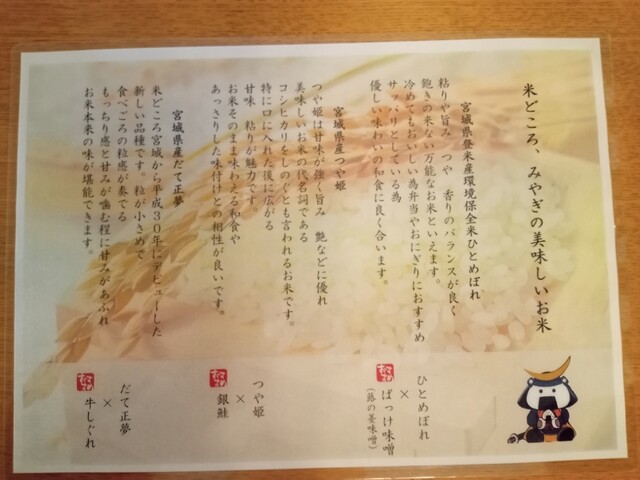 米どころ、みやぎの美味しいお米
宮城県登米産環境保全米ひとめぼれ
粘りや旨み つや 香りのバランスが良く
飽きの来ない万能なお米といえます。
冷めてもおいしい為弁当やおにぎりにおすすめ
サッパリとしている為
優しい味わいの和食に良く合います。
宮城県産つや姫
つや姫は甘味が強く旨み 艶などに優れ
美味しいお米の代名詞である
コシヒカリをしのぐとも言われるお米です。
特に口に入れた後に広がる
甘味 粘りが魅力です。
お米そのまま味わえる和食や
あっさりした味付けとの相性が良いです。
宮城県産だて正夢
米どころ宮城から平成30年にデビューした
新しい品種です。粒が小さめで
食べごろの粒感が奏でる
もっちり感と甘みが噛む程に甘みがあふれ
お米本来の味が堪能できます。
ひとめぼれ
×
ばっけ味噌
(蕗の薹味噌)
つや姫
×
銀鮭
だて正夢
×
牛しぐれ